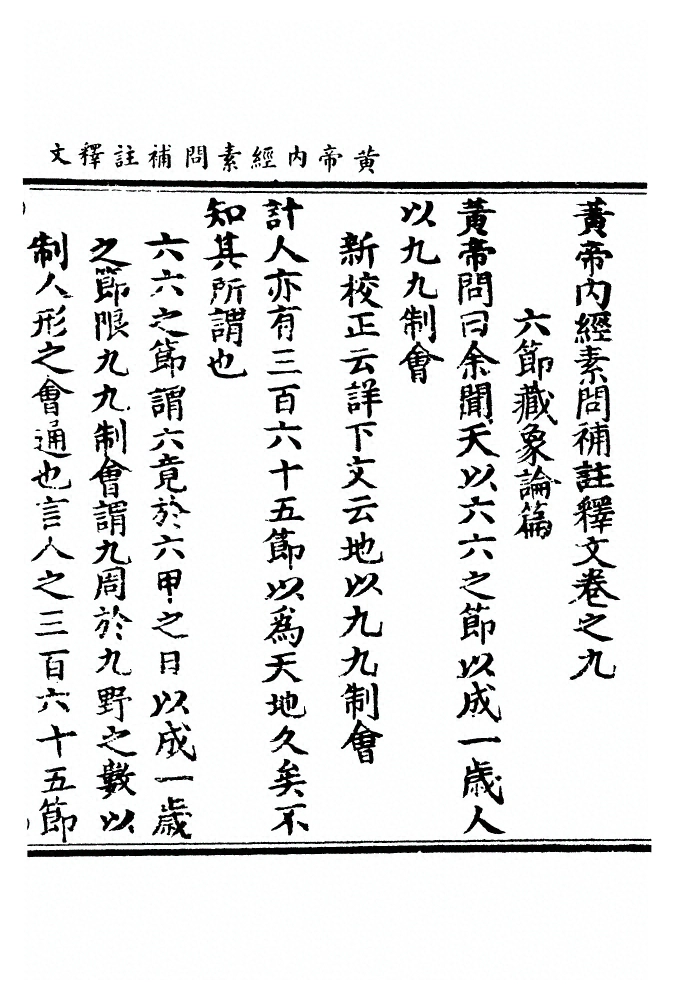 黃帝內經素問補註釋文
黃帝內經素問補註釋文卷之九
六節藏象論篇
黃帝問曰余聞天以六六之節以成一歲人
以九九制會
新校正云詳下文云地以九九制會
計人亦有三百六十五節以為天地久矣不
知其所謂也
六六之節謂六竟於六甲之日以成一歲
之節限九九制會謂九周於九野之數以
制人形之會通也言人之三百六十五節